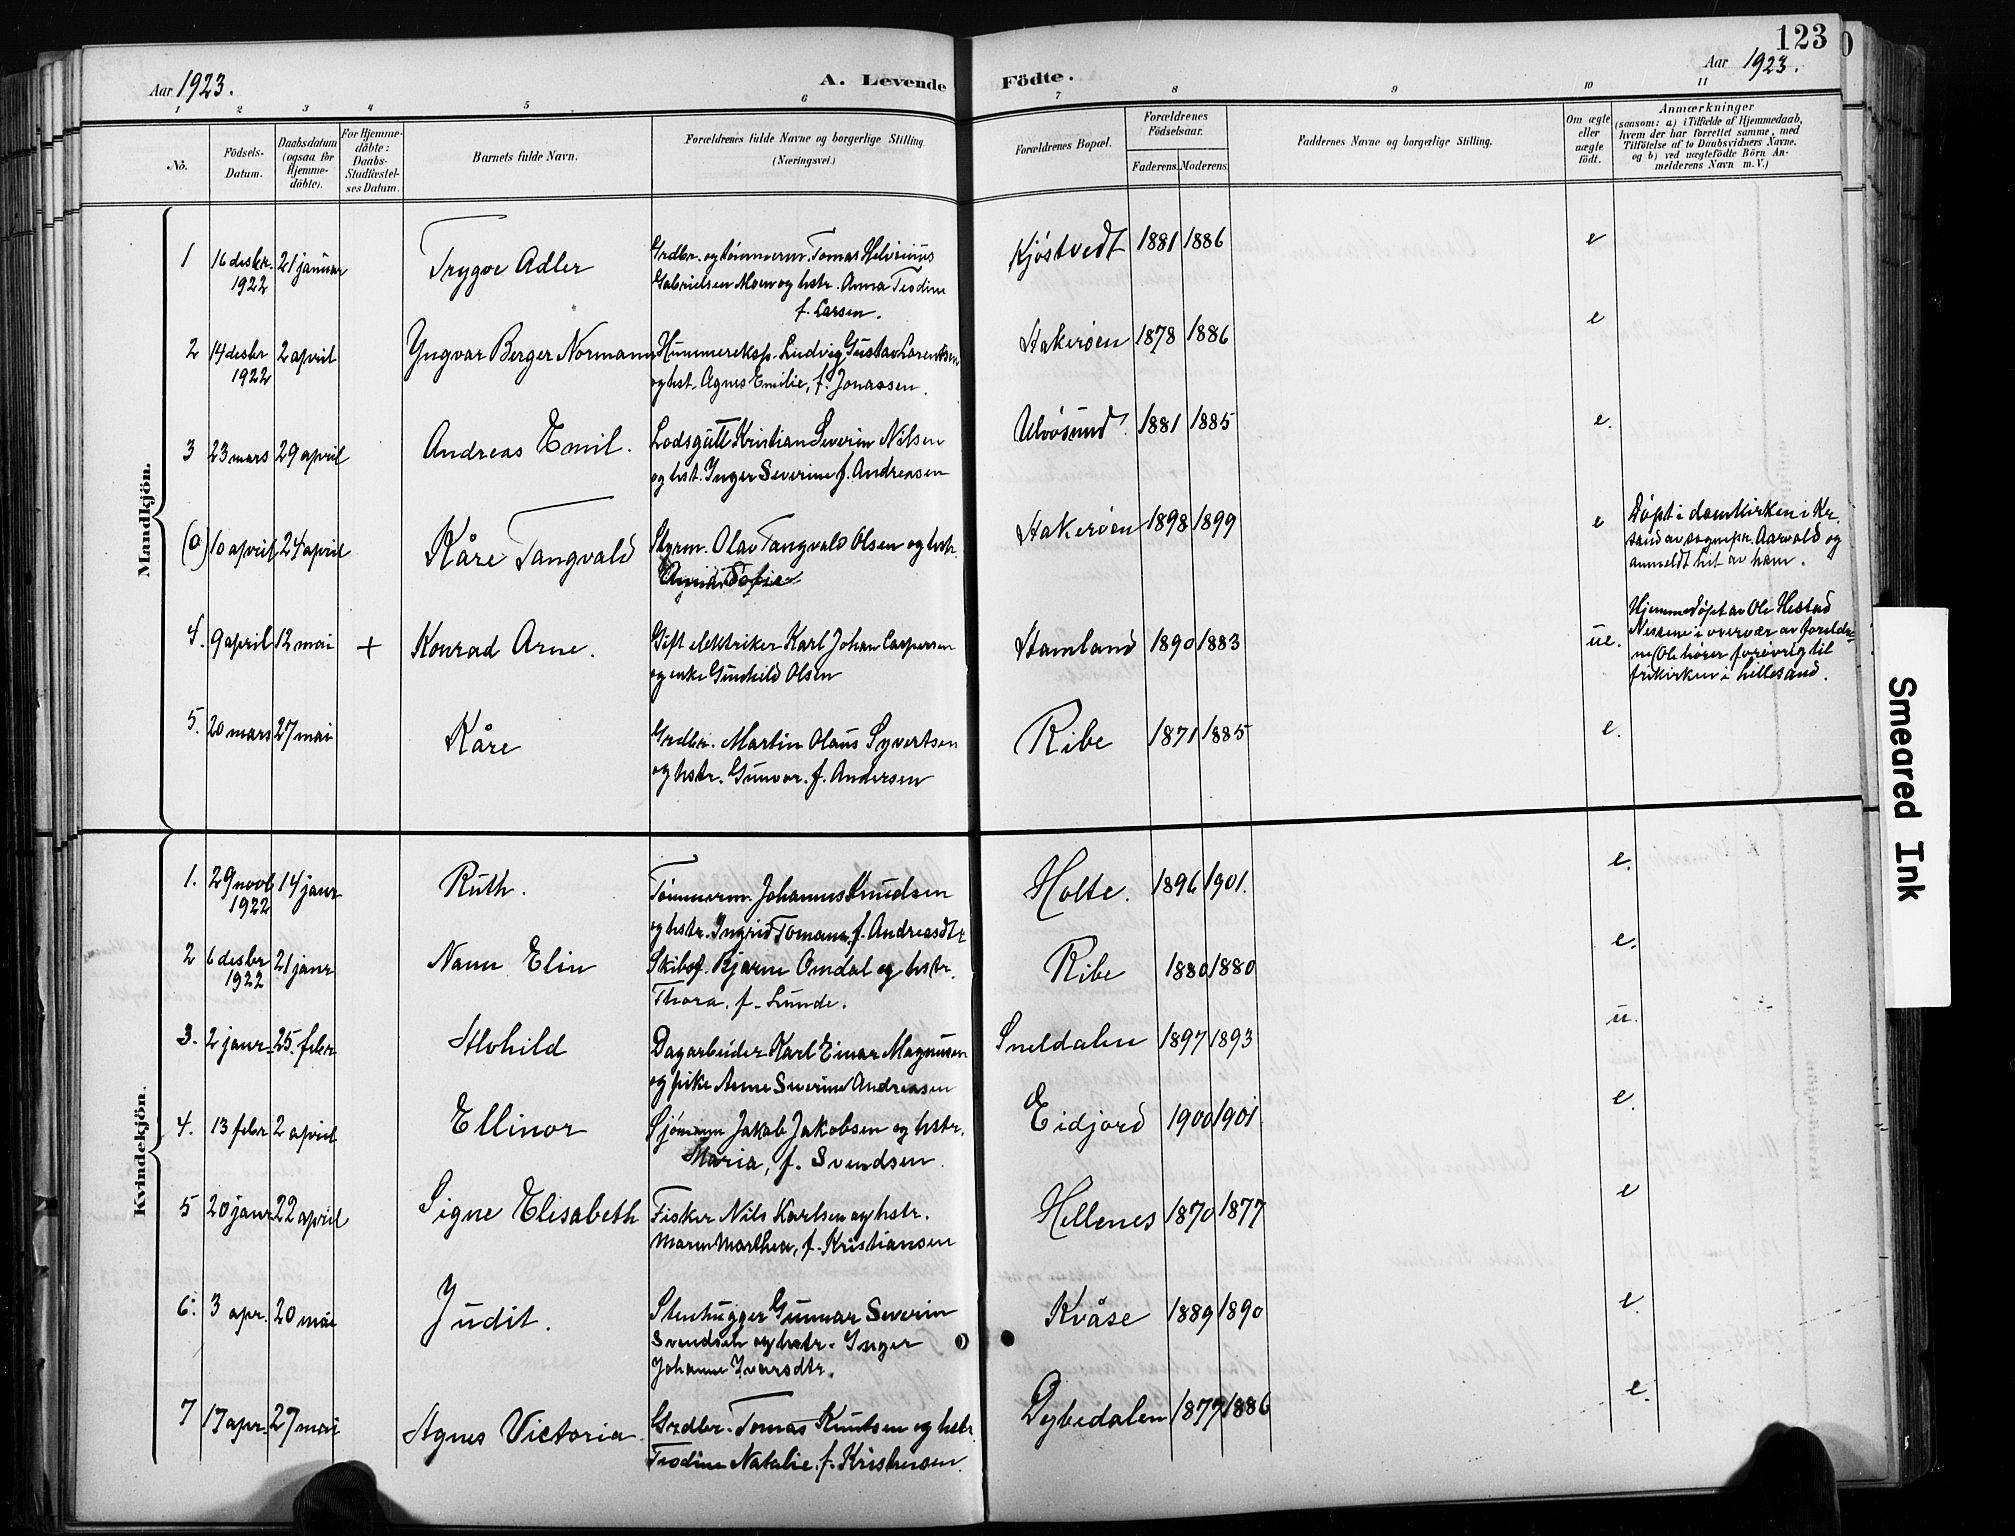 123
Aar 1923. A. Levende Födte. Aar 1923.
1 2 3 4 5 6 7 8 9 10 11
No. Födsels-Datum. Daabsdatum (ogsaa för Hjemme-döbte). For Hjemme-döbte: Daabs-Stadfæstel-ses Datum. Barnets fulde Navn. Forældrenes fulde Navne og borgerlige Stilling (Næringsvei.) Forældrenes Bopæl. Forældrenes Födselsaar. Faderens. Moderens. Faddernes Navne og borgerlige Stilling. Om ægte eller uægte födt. Anmærkninger
(saasom: a) i Tilfælde af Hjemmedaab,
hvem der har forrettet samme, med
Tilföielse af to Daabsvidners Navne.
og b) ved uægtefödte Börn An-
melderens Navn m. V.)
Mandkjön.
1 16 desbr. 1922 21 januar Trygve Adler Grdbr. og tømmerm. Tomas Helvinius
Gabrielsen Moen og hstr. Anna Teodine
f. Larsen. Kjøstvedt 1881 1886 e
2 14 desbr 1922 2 april Yngvar Berger Normann Hummereksp. Ludvig Gustav Lorentsen
og hst. Agnes Emilie, f. Jonassen. Hakerøen 1878 1886 e
3 23 mars 29 april Andreas Emil. Lodsgutt Kristian Severin Nilsen
og hst. Inger Severine f. Andreasen Ulvøsund. 1881 1885 e.
(0) 10 april 24 april Kåre Tangvald Styrm. Olav Tangvald Olsen og hstr.
Sofie Hakerøen 1898 1899 e Døpt i domkirken i Kr.
sand av sognepr. Aarvold og
anmeldt hit av ham.
4. 9 april 12 mai + Konrad Arne. Gift elektriker Karl Johan Caspersen
og enke Gunhild Olsen Hamland 1890 1883 ue. Hjemmedøpt av Ole Hestad
i overvær av foreldre-
ne (Ole hører forøvrig til
frikirken i Lillesand.
5. 20 mars 27 mai Kåre Grdbr. Martin Olaus Syvertsen
og hstr. Gunvor. f. Andersen Ribe 1871 1885 e.
Kvindekjön.
1. 29 novb 1922 14 janr Ruth. Tømmerm. Johannes Knudsen
og hstr. Ingrid Tomana, f. Andreasdtr Holte. 1896 1901. e.
2 6 desbr 1922 21 janr Nann Elin Skibsf. Bjarne Omdal og hstr.
Thora. f. Lunde. Ribe 1880 1880 e.
3. 2 janr. 25. febr Alvhild Dagarbeider Karl Einar Magnusen
og pike Anne Severine Andreasen Sneldalen 1897 1893 u.
4. 13 febr 2 april Ellinor Sjømann Jakob Jakobsen og hstr.
Maria, f. Svendsen. Eidjord 1900 1901 e.
5 20 janr 22 april Signe Elisabeth Fisker Nils Karlsen og hstr.
Maren Marthea, f. Kristiansen Hellenes 1870 1877 e
6. 3 apr. 20 mai Judit. Stenhugger Gunnar Severin
Svendsen og hstr. Inger
Johanne Ivarsdtr. Kvåse 1889 1890 e.
7 17 apr. 27 mai Agnes Victoria Grdbr. Tomas Knutsen og hstr.
Teodine Natalie, f. Kristensen. Dybedalen 1877 1886 e.
Smeared Ink